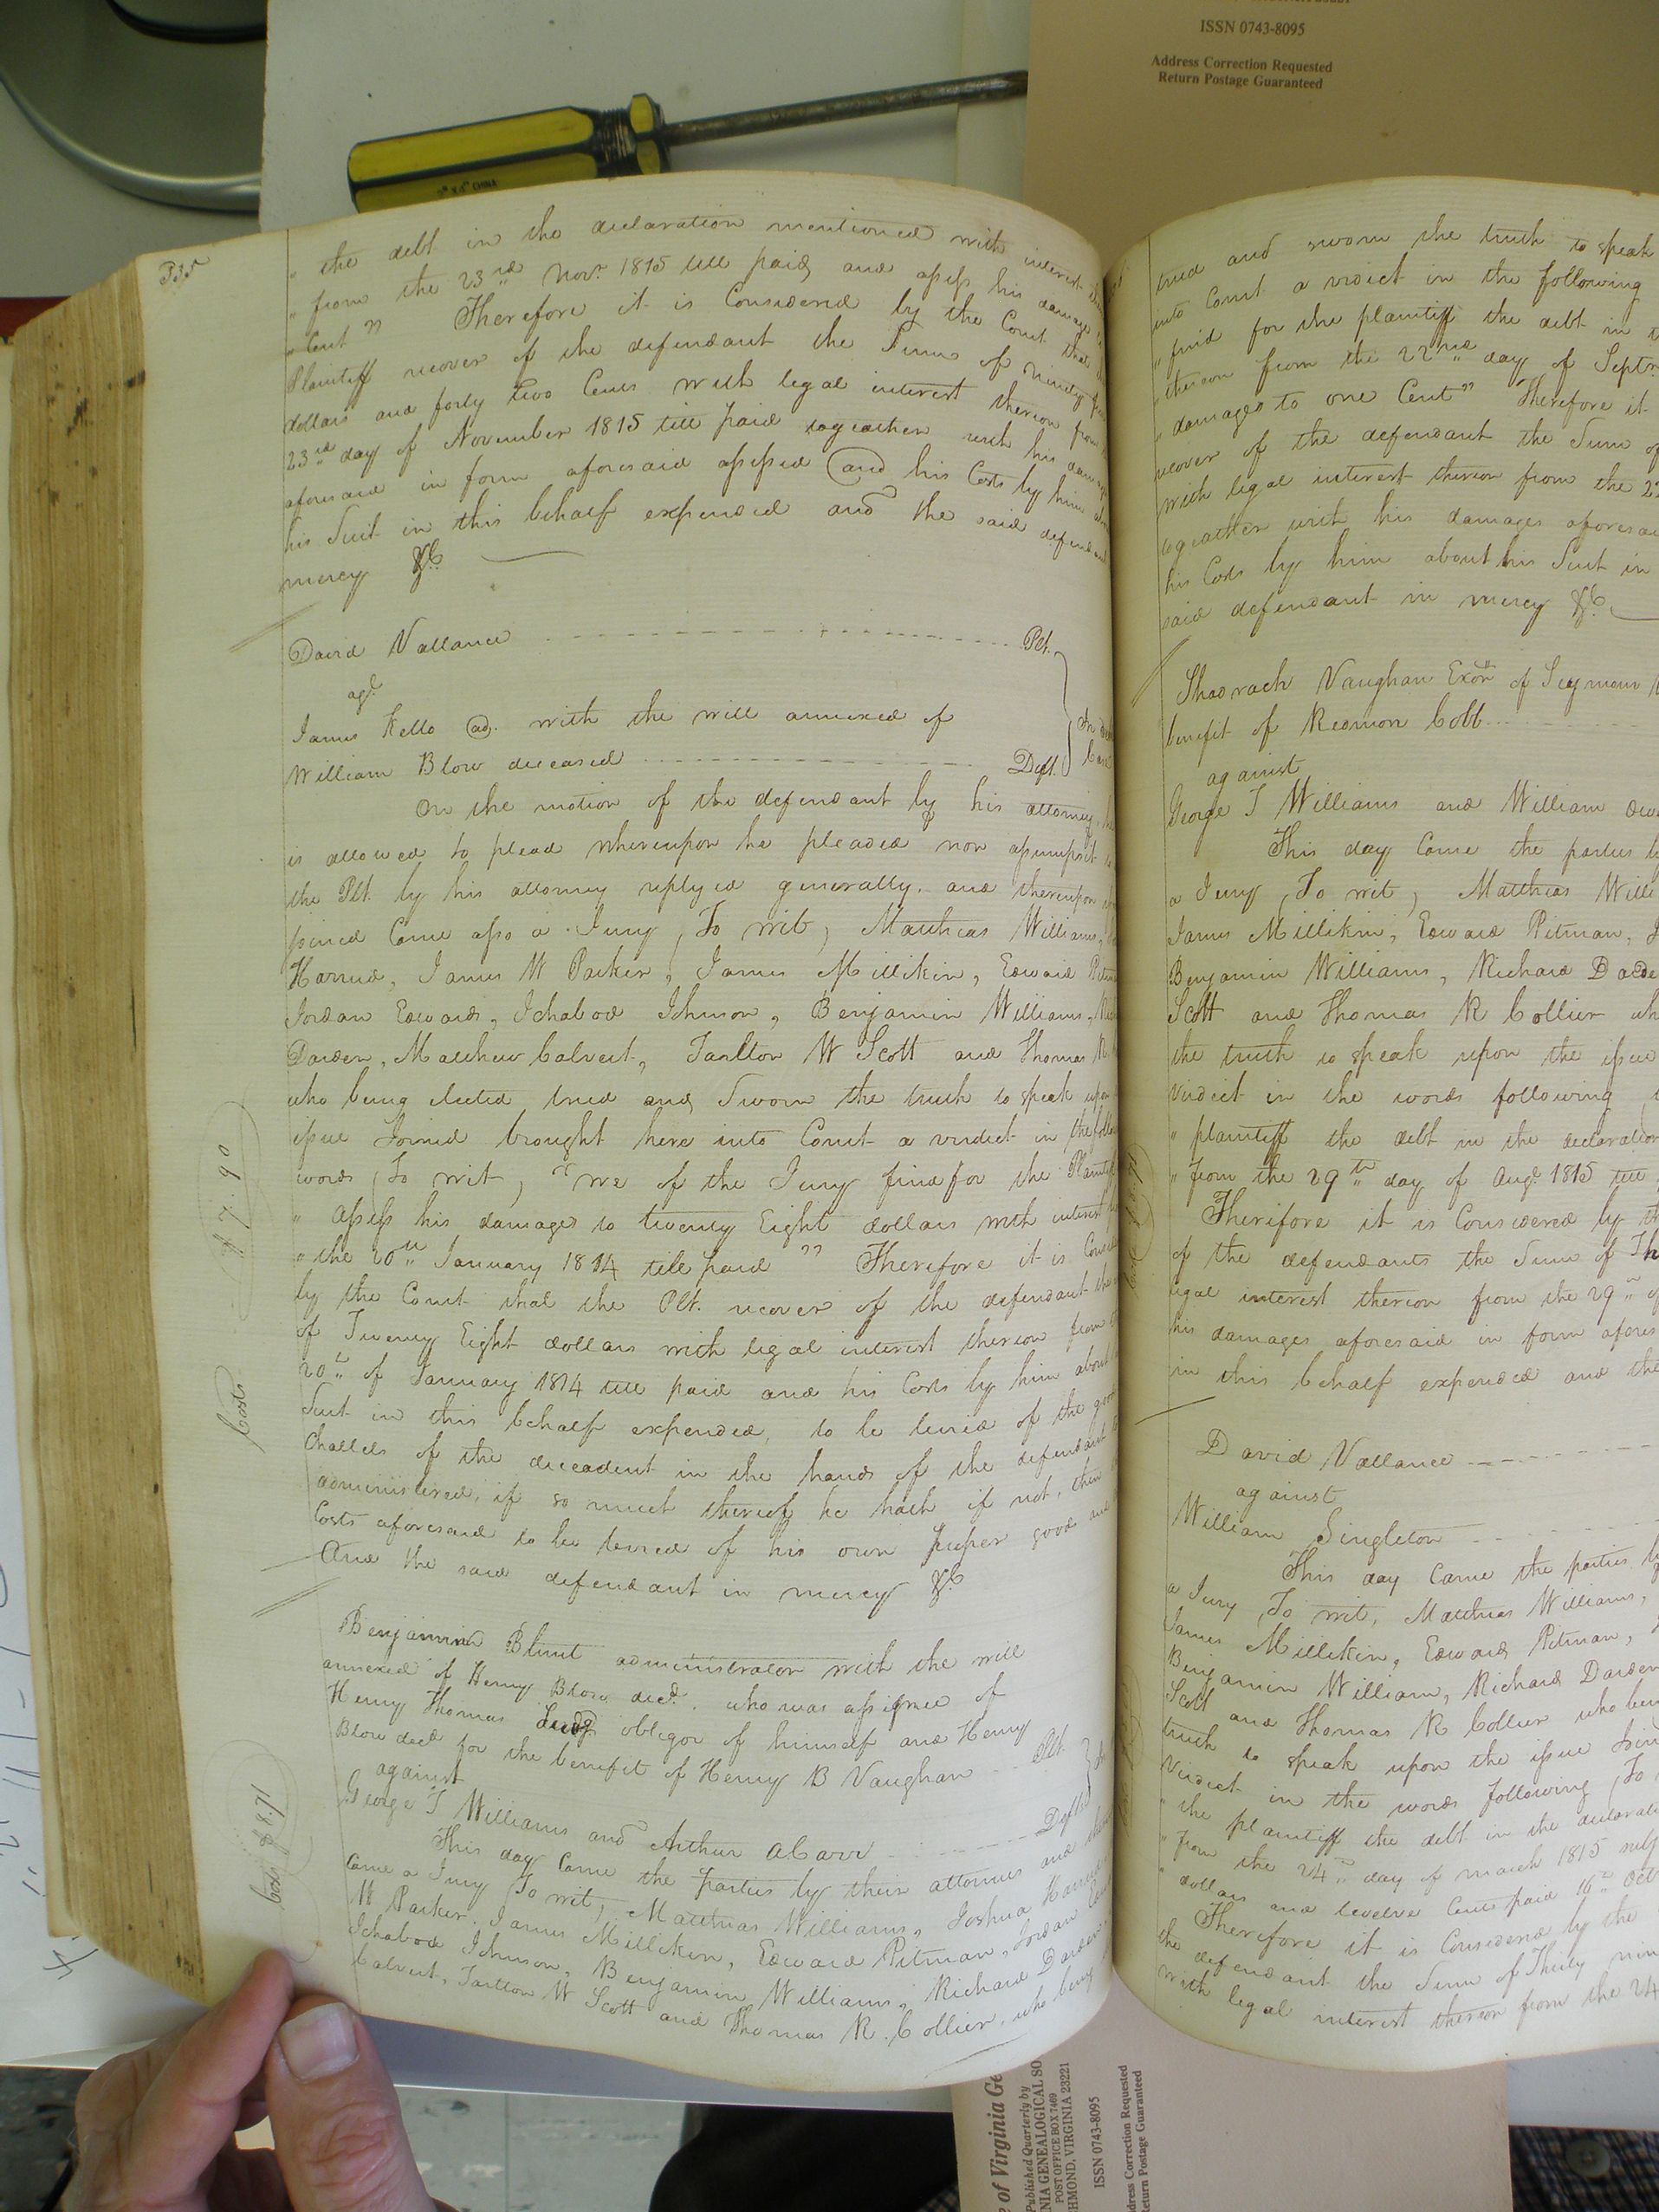 ISSN 0743-8095
Address Correction Requested
Return Postage Guaranteed
335
" the debt in the declaration mentioned with interest
" from the 23rd Novr. 1815 till paid, and assess his damages
" Cent " Therefore it is Considered by the Court that
Plaintiff recover of the defendant the Sum of Ninety
dollars and forty two Cents with legal interest thereon from
23rd day of November 1815 till paid togeather with his
aforesaid in form aforesaid assessed and his Costs by him
his Suit in this behalf expended and the said defendant
mercy &c
David Vallance Plt.
agt.
James Kello ad. with the will annexed of
William Blow deceased Deft.
On the motion of the defendant by his attorney
is allowed to plead whereupon he pleaded non assumpsit
the Plt. by his attorney replyed generally. and thereupon
joined Came also a Jury, To wit, Matthias Williams,
Harred, James W Parker, James Millikin, Edward
Jordan Edwards, Ichabod Johnson, Benjamin Williams,
Darden, Matthew Calvert, Tarlton W Scott and Thomas R
who being elected tried and Sworn the truth to speak upon
issue Joined brought here into Court a verdict in the
words, To wit, " we of the Jury find for the
" assess his damages to twenty Eight dollars with interest
" the 20th January 1814 till paid " Therefore it is
by the Court that the Plt. recover of the defendant the
of Twenty Eight dollars with legal interest thereon from
20th of January 1814 till paid and his Costs by him about
Suit in this behalf expended, to be levied of the
Chattels of the decedent in the hands of the defendant
administered, if so much thereof he hath if not, then
Costs aforesaid to be levied of his own proper good
And the said defendant in mercy &c
Costs $7.90
Benjamin Blunt administrator with the will
annexed of Henry Blow decd. who was assignee of
Henry Thomas obligor of himself and Henry
Blow decd for the benefit of Henry B Vaughan Plt.
against
George T Williams and Arthur A Carr Defts
This day Came the parties by their attornies and
Came a Jury To wit, Matthias Williams, Joshua Harred
W Parker, James Millikin, Edward Pitman, Jordan
Ichabod Johnson, Benjamin Williams, Richard Darden,
Calvert, Tarlton W Scott and Thomas R. Collier, who being
Costs $8.71
tried and sworn the truth to speak
into Court a verdict in the following
" find for the plaintiff the debt in
" thereon from the 22nd day of Septr.
" damages to one Cent " Therefore it
recover of the defendant the Sum of
with legal interest thereon from the
togeather with his damages aforesaid
his Costs by him about his Suit in
said defendant in mercy &c
Shadrach Vaughan Exor of Seymour
benefit of Redmon Cobb
against
George T Williams and William
This day Came the parties by
a Jury, To wit, Matthias
James Millikin, Edward Pitman,
Benjamin Williams, Richard
Scott and Thomas R Collier
the truth to speak upon the issue
Verdict in the words following
" plaintiff the debt in the declaration
" from the 29th day of Augt. 1815 till
Therefore it is Considered by the
of the defendants the Sum of
legal interest thereon from the 29th of
his damages aforesaid in form
in this behalf expended and the
David Vallance
against
William Singleton
This day Came the parties by
a Jury, To wit, Matthias Williams,
James Millikin, Edward Pitman,
Benjamin William, Richard Darden
Scott and Thomas R Collier who being
truth to speak upon the issue
Verdict in the words following, To
" the plaintiff the debt in the
" from the 24th day of march 1815
" dollars and twelve Cents paid 16th
Therefore it is Considered by the
the defendant the Sum of Thirty
with legal interest thereon from the 24
of Virginia
Published Quarterly by
GENEALOGICAL
POST OFFICE BOX 7469
VIRGINIA 23221
ISSN 0743-8095
Address Correction Requested
Return Postage Guaranteed